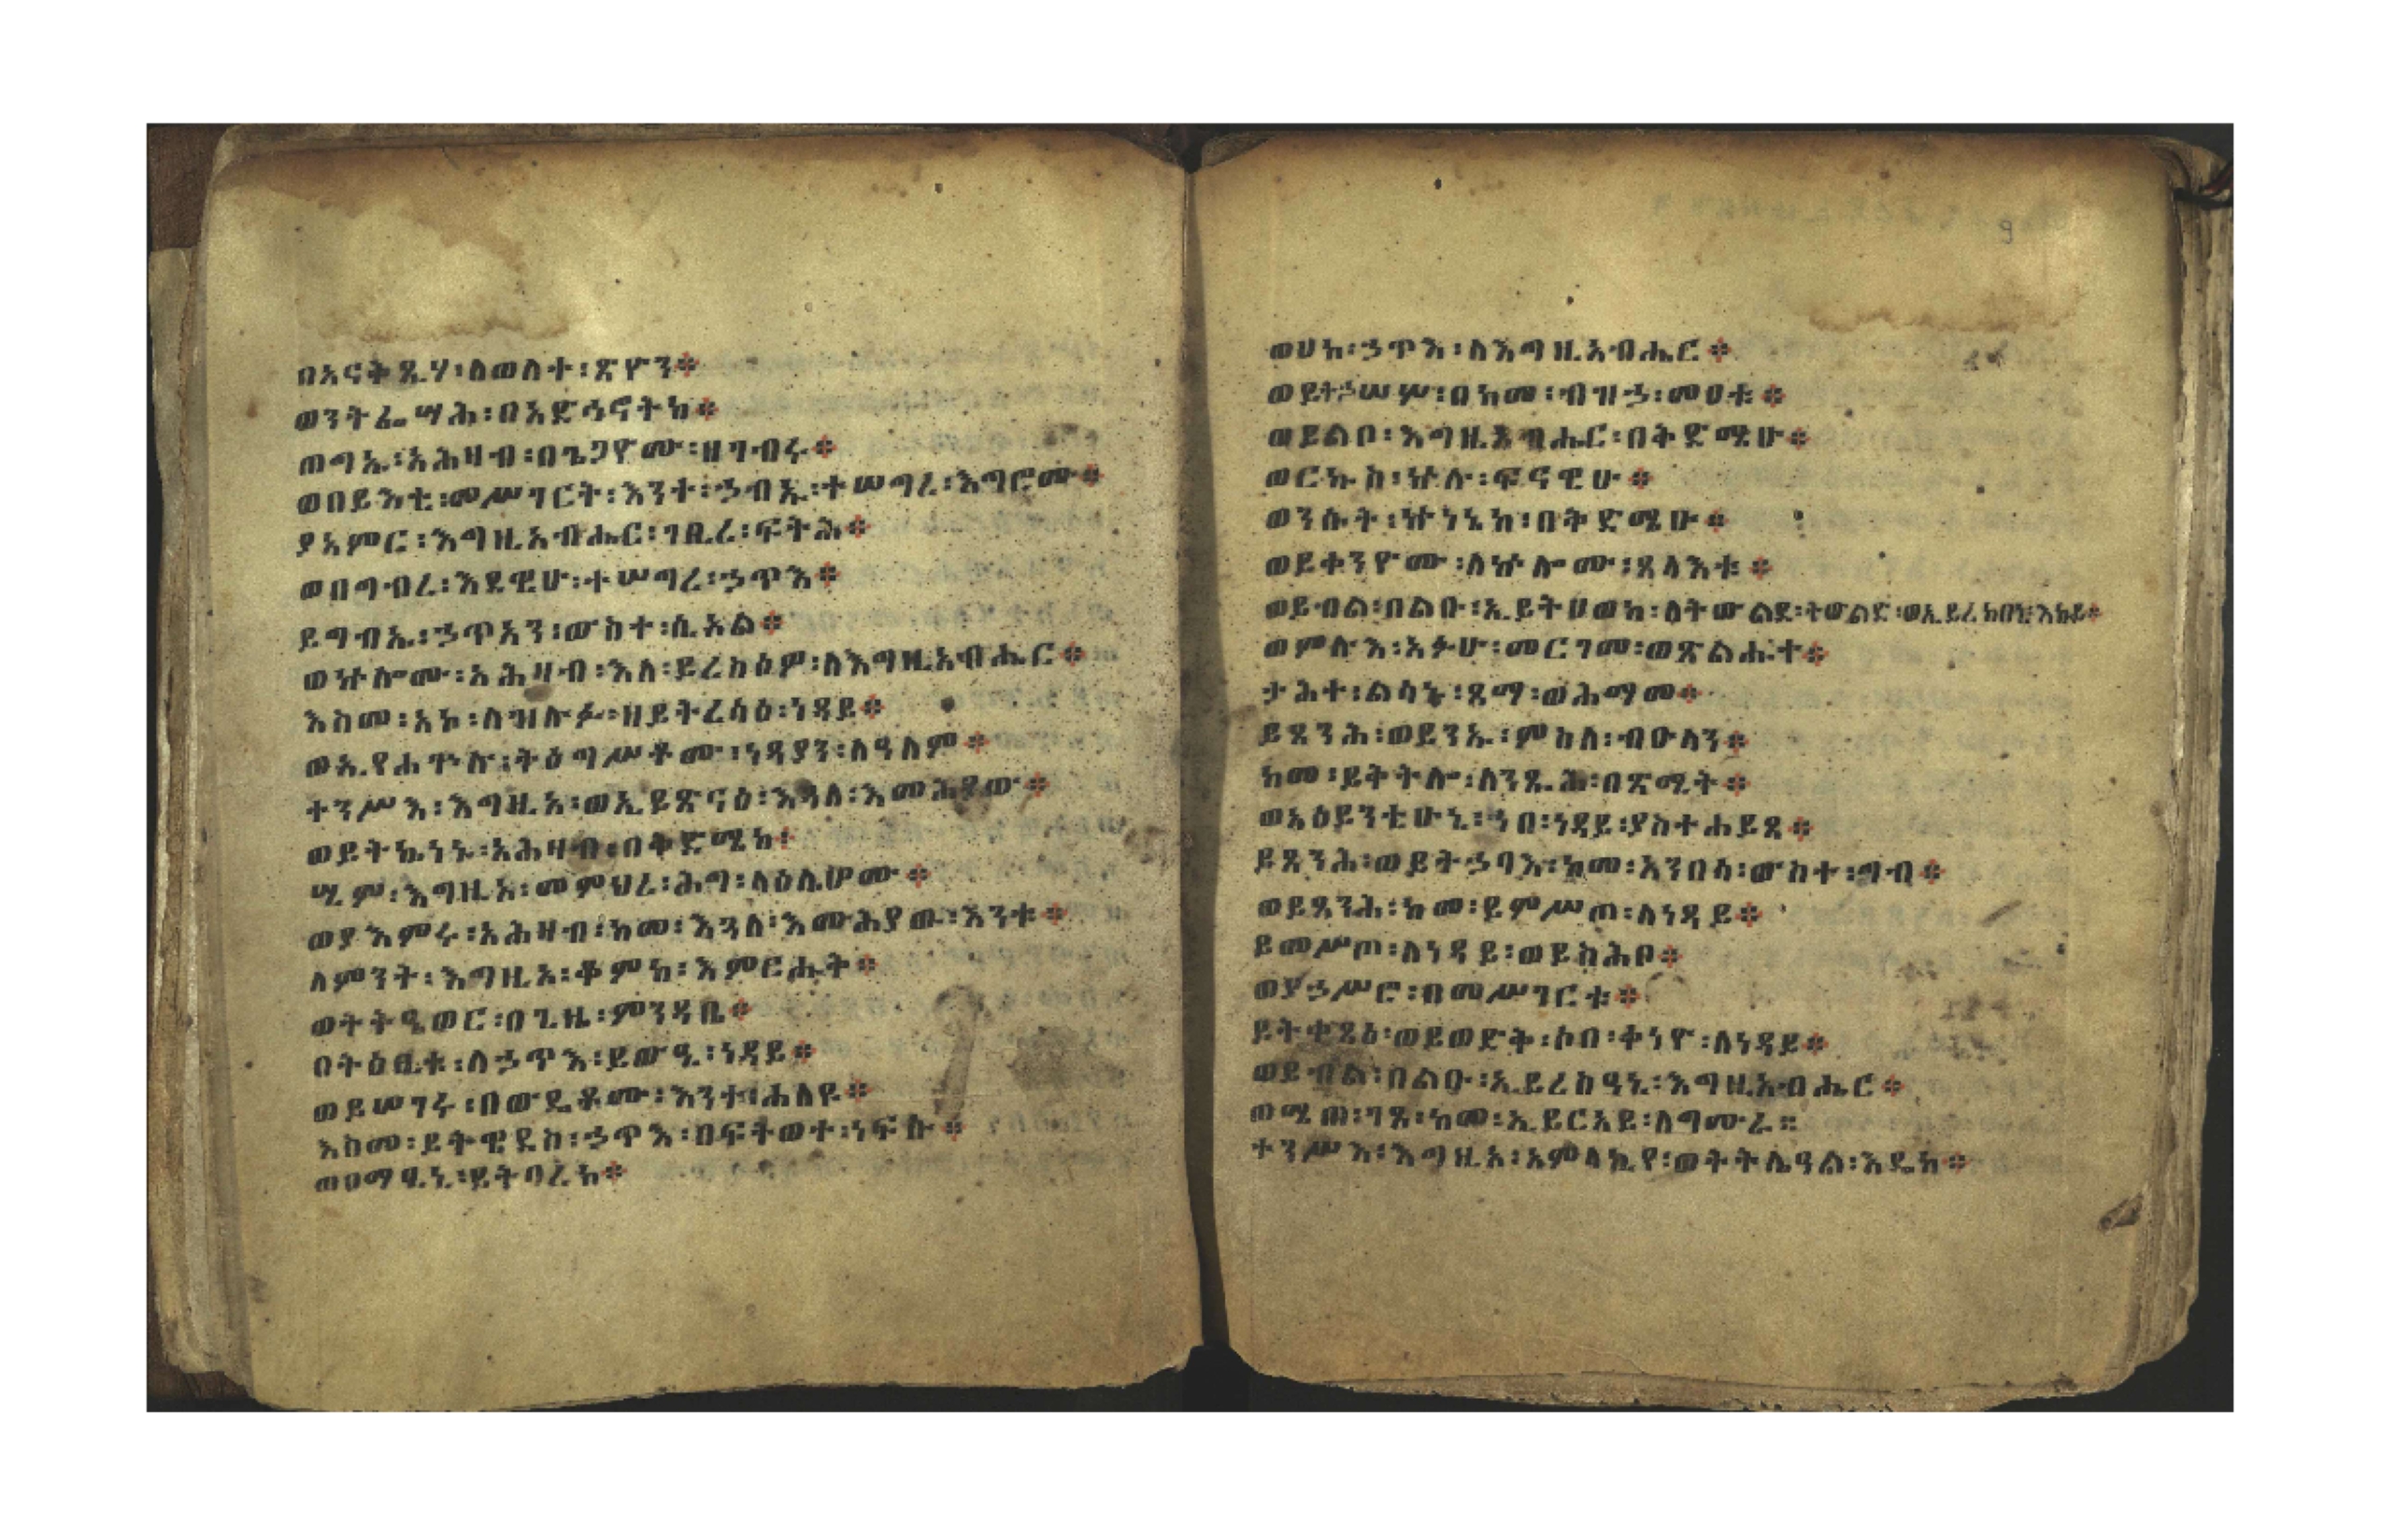 በአናቅጺሃ፡ለወለተ፡ጽዮን።
ወንትፌሣሕ፡በአድኅኖትከ።
ጠግኡ፡አሕዛብ፡በጌጋዮሙ፡ዘገብሩ።
ወበይእቲ፡መሥገርት፡እንተ፡ኃብኡ፡ተሠግረ፡እግሮሙ።
ያአምር፡እግዚአብሔር፡ገቢረ፡ፍትሕ።
ወበግብረ፡እደዊሁ፡ተሠግረ፡ኃጥእ።
ይግብኡ፡ኃጥአን፡ውስተ፡ሲኦል።
ወኵሎሙ፡አሕዛብ፡እለ፡ይረስዕዎ፡ለእግዚአብሔር።
እስመ፡አኮ፡ለዝሉፉ፡ዘይትረሳዕ፡ነዳይ።
ወኢየሐጕሉ፡ትዕግሥቶሙ፡ነዳያን፡ለዓለም።
ተንሥእ፡እግዚኦ፡ወኢይጽናዕ፡እጓለ፡እመሕያው።
ወይትኰነኑ፡አሕዛብ፡በቅድሜከ፡
ሢም፡እግዚኦ፡መምህረ፡ሕግ፡ላዕሌሆሙ።
ወያእምሩ፡አሕዛብ፡ከመ፡እጓለ፡እመሕያው፡እንቱ።
ለምንት፡እግዚኦ፡ቆምከ፡እምርሑቅ።
ወትትዔወር፡በጊዜ፡ምንዳቤ።
በትዕቢቱ፡ለኃጥእ፡ይውዒ፡ነዳይ።
ወይሠገሩ፡በውዴቶሙ፡እንተ፡ሐለዩ።
እስመ፡ይትዌደስ፡ኃጥእ፡በፍትወተ፡ነፍሱ።
ወዐማፂኒ፡ይትባረክ።
ወሀከ፡ኃጥእ፡ለእግዚአብሔር።
ወይተኃሠሥ፡በከመ፡ብዝኃ፡መዐቱ።
ወይልቦ፡እግዚአብሔር፡በቅድሜሁ።
ወርኩስ፡ኵሉ፡ፍናዊሁ።
ወንሱት፡ኵነኔከ፡በቅድሜሁ።
ወይቀንዮሙ፡ለኵሎሙ፡ጸላእቱ።
ወይብል፡በልቡ፡ኢይትሀወክ፡ለትውልደ፡ትውልድ፡ወኢይረክበኒ፡እኩይ።
ወምሉእ፡አፉሁ፡መርገመ፡ወጽልሑተ።
ታሕተ፡ልሳኑ፡ጻማ፡ወሕማመ።
ይጸንሕ፡ወይንኡ፡ምስለ፡ብዑላን።
ከመ፡ይቅትሎ፡ለንጹሕ፡በጽሚት።
ወአዕይንቲሁኒ፡ኀበ፡ነዳይ፡ያስተሐይጻ።
ይጸንሕ፡ወይትኃባእ፡ከመ፡አንበሳ፡ውስተ፡ግብ።
ወይጸንሕ፡ከመ፡ይምሥጦ፡ለነዳይ።
ይመሥጦ፡ለነዳይ፡ወይስሕቦ።
ወያኃሥሮ፡በመሥገርቱ።
ይትቀጻዕ፡ወይወድቅ፡ሶበ፡ቀነዮ፡ለነዳይ።
ወይብል፡በልቡ፡ኢይረስዓኒ፡እግዚአብሔር።
ወሜጠ፡ገጾ፡ከመ፡ኢይርአይ፡ለግሙራ።
ተንሥእ፡እግዚኦ፡አምላኪየ፡ወትትሌዓል፡እዴከ።